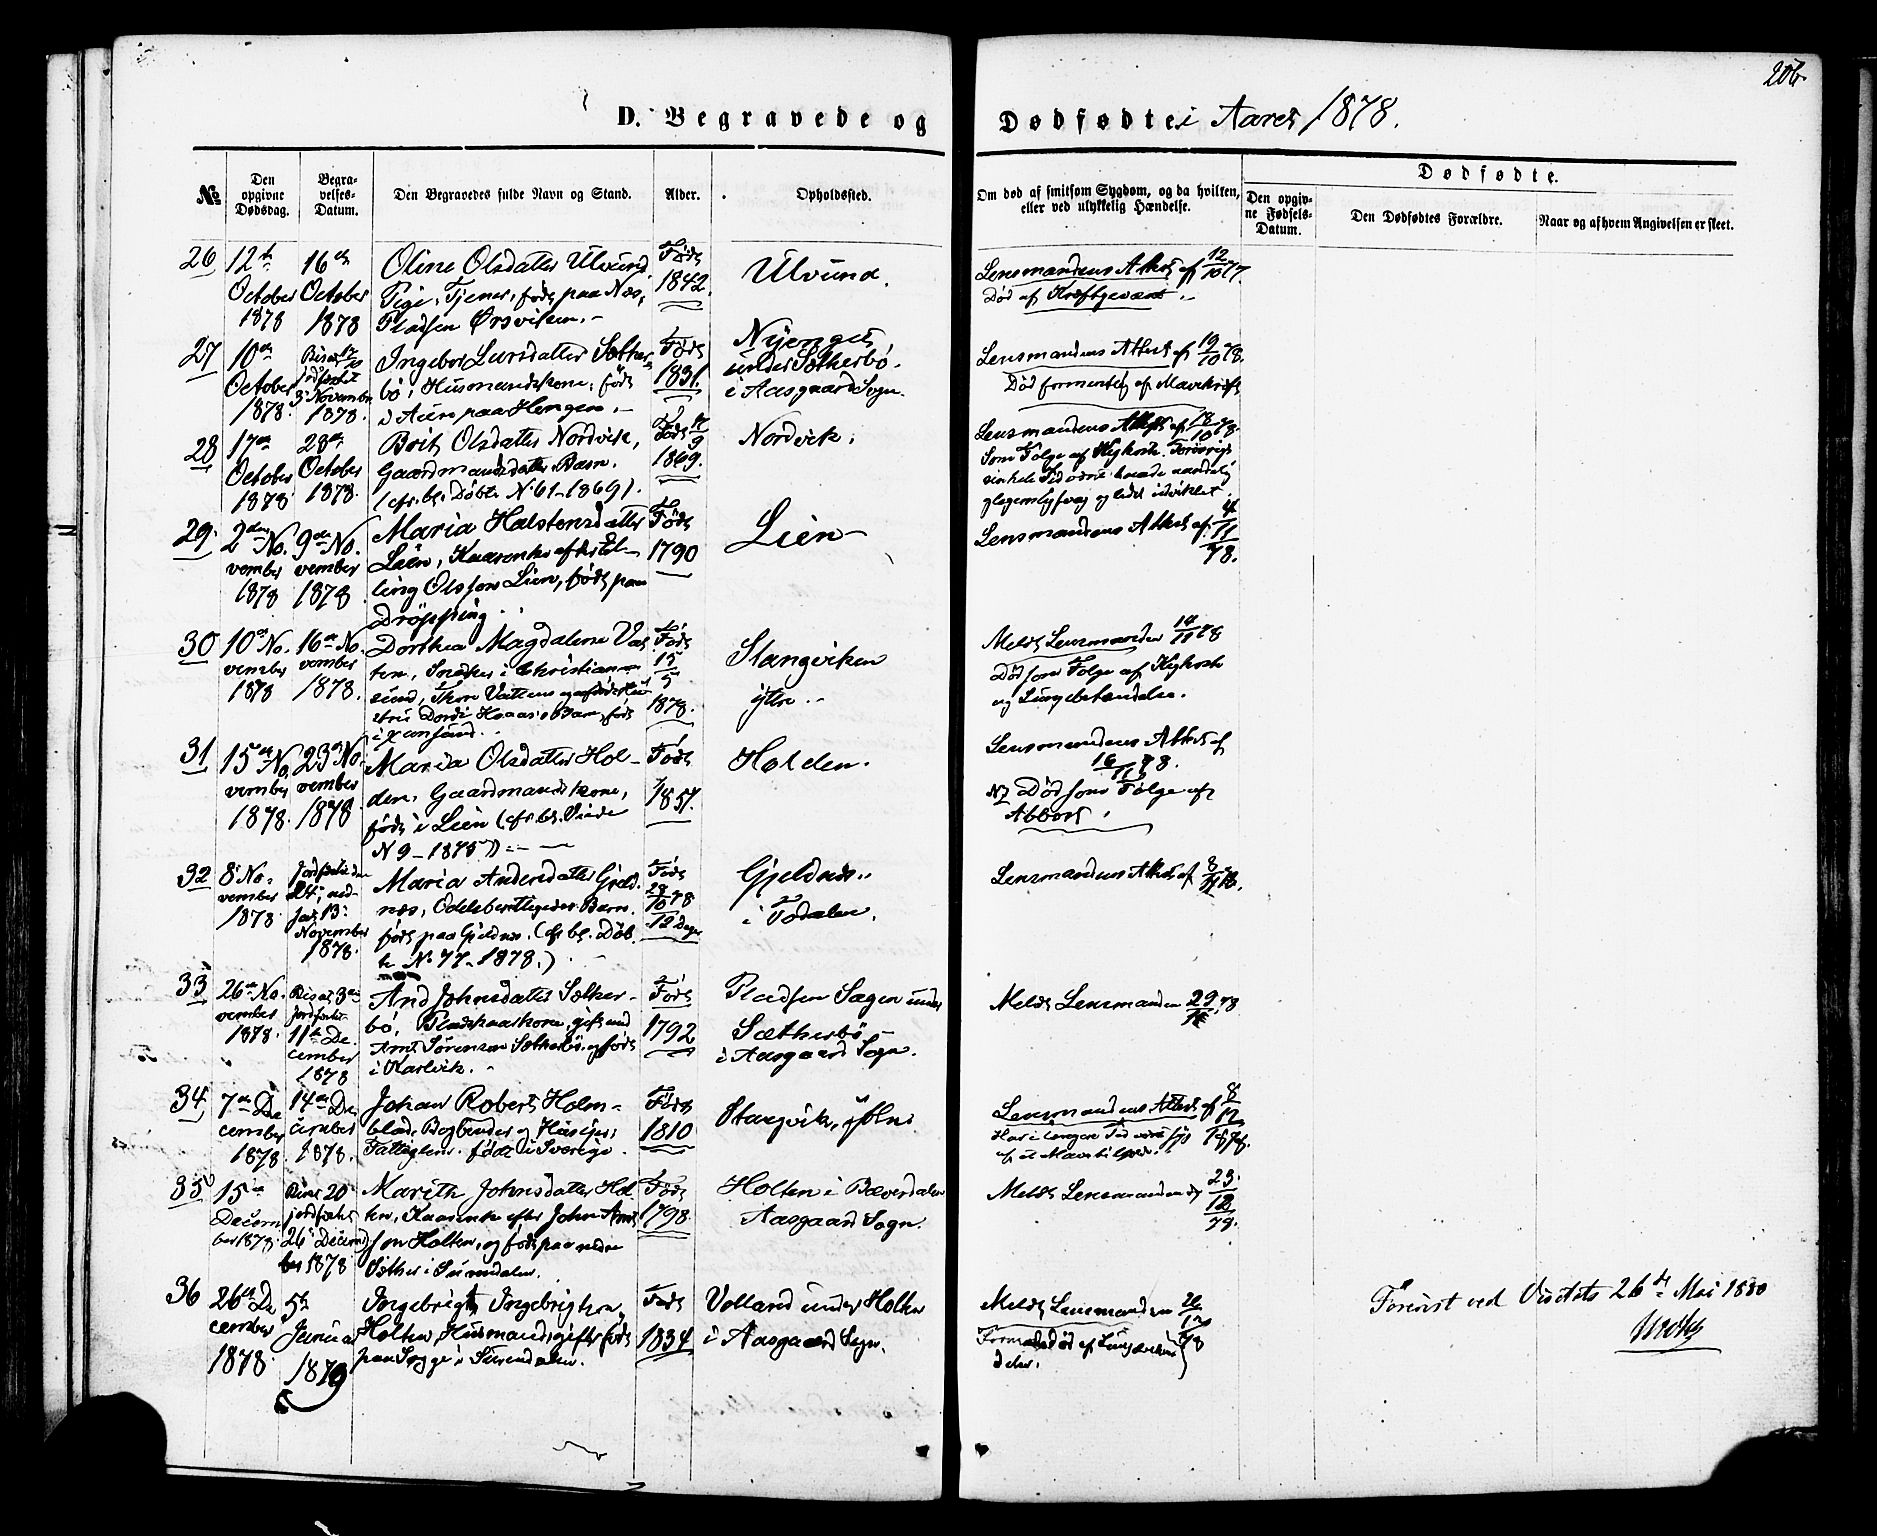 206.
D. Begravede og Dødfødte i Aaret 1878.
№
Den opgivne Dødsdag.
Begravelses-Datum.
Den Begravedes fulde Navn og Stand.
Alder.
Opholdssted.
Om død af smitsom Sygdom, og da hvilken, eller ved ulykkelig Hændelse.
Dødfødte.
Den opgivne Fødsels-Datum.
Den Dødfødtes Forældre.
Naar og af hvem Angivelsen er skeet.
26
12te October 1878
16de October 1878
Oline Olsdatter Ulvund,
Pige, Tjener, født paa Næs,
Pladsen Ørsviken.
Født 1842.
Ulvund.
Lensmandens Attest af 12/10 77.
Død af
27
10de October 1878.
3 November 1878.
Ingebor Larsdatter Sæther-
bø, Husmandskone, født
Født 1831.
Nyenget
under Sætherbø
i Aasgaard Sogn.
Lensmandens Attest af 19/10 78.
Død formentlig af Mavekræft
28
17de October 1878.
28de October 1878.
Brit Olsdatter Nordvik,
Gaardmandsdatter, Barn.
(cfr. bl. Døbte N. 61-1869).
Født 1869.
Nordvik.
Lensmandens Attest af 18/10 78.
Som Følge af Kighoste.
29.
2den November 1878
9de November 1878
Maria Halstensdatter
Lien, Kaarenke efter
Olsson Lien, født paa
Drøpping.
Født 1790
Lien
Lensmandens Attest af 4/11 78.
30
10de November 1878
16de November 1878.
Dorthea Magdalene
i Christian-
sund,
Barn, født
Født 15/5 1878.
Stangviken
ytre
Meldt Lensmanden 14/11 78
Død som Følge af Kighoste
og Lungebetændelse.
31
15de November 1878.
23de November 1878
Maria Olsdatter Hol-
den, Gaardmandskone,
født i Lien (cfr. bl. Viede
N 9-1875)
Født 1857.
Holden.
Lensmandens Attest af
16/11 78.
Død som Følge af
Abbort.
32
8 November 1878
13 November 1878.
Maria Andersdatter Gjeld-
næs, Barn.
født paa Gjeldnes. (cfr. bl. Døb-
te N. 77-1878.)
Født 28/10 78
12 Dage
Gjeldnes
i Todalen.
Lensmandens Attest af 8/11 78.
33
26de November 1878.
11te December 1878
Johnsdatter Sæther-
bø, gift med
Arnt Sørensen Sætherbø, og født
i Karlvik.
Født 1792
Pladsen Sagen under
Sætherbø
i Aasgaard Sogn.
Meldt Lensmanden 78
34
7de December 1878
14de December 1878.
Johan Robert Holm-
blad, Bogbinder og Husejer,
Fattiglem. født i Sverige.
Født 1810
Stangvik, ytre
Lensmandens Attest af 8/12 1878.
Har i længere Tid været syg
35
15de December 1878
26 December 1878
Marith Johnsdatter Hol-
ten, Kaarenke efter John Arnt-
søn Holten, og født paa nedre
Sæther i Surendalen.
Født 1798.
Holten i Bæverdalen
Aasgaard Sogn.
Meldt Lensmanden 23/12 78.
36
26de December 1878.
5te Januar 1879
Ingebrigt Ingebrigtsen
Holten, Husmand, gift, født
paa Sogge i Surendalen.
Født 1834
Volland under Holten
i Aasgaard Sogn.
Meldt Lensmanden 78
død af
Forevist ved Visitats 26de Mai 1880